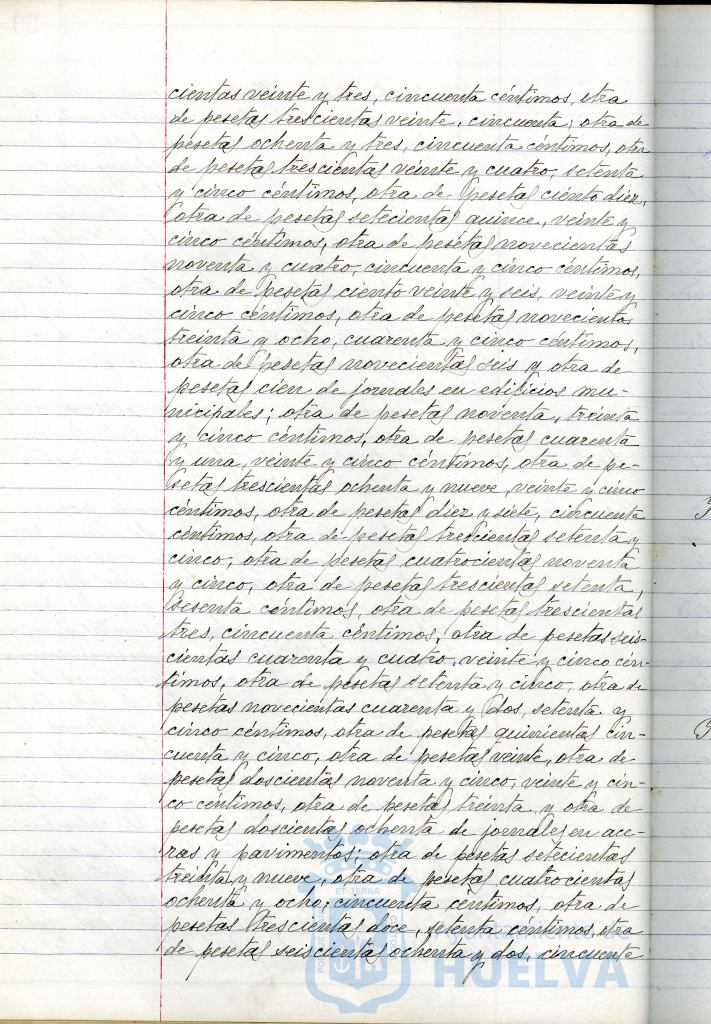 cientas veinte y tres, cincuenta céntimos, otra
de pesetas trescientas veinte, cincuenta; otra de
pesetas ochenta y tres, cincuenta céntimos, otra
de pesetas trescientas veinte y cuatro, setenta
y cinco céntimos, otra de pesetas ciento diez,
otra de pesetas setecientas quince, veinte y
cinco céntimos, otra de pesetas novecientas
noventa y cuatro, cincuenta y cinco céntimos,
otra de pesetas ciento veinte y seis, veinte y
cinco céntimos, otra de pesetas novecientas
treinta y ocho, cuarenta y cinco céntimos,
otra de pesetas novecientas seis y otra de
pesetas cien de jornales en edificios mu-
nicipales; otra de pesetas noventa, treinta
y cinco céntimos, otra de pesetas cuarenta
y una, veinte y cinco céntimos, otra de pe-
setas trescientas ochenta y nueve, veinte y cinco
céntimos, otra de pesetas diez y siete, cincuenta
céntimos, otra de pesetas trescientas setenta y
cinco, otra de pesetas cuatrocientas noventa
y cinco, otra de pesetas trescientas setenta,
sesenta céntimos, otra de pesetas trescientas
tres, cincuenta céntimos, otra de pesetas seis-
cientas cuarenta y cuatro, veinte y cinco cén-
timos, otra de pesetas setenta y cinco, otra de
pesetas novecientas cuarenta y dos, setenta y
cinco céntimos, otra de pesetas quinientas cin-
cuenta y cinco, otra de pesetas veinte, otra de
pesetas doscientas noventa y cinco, veinte y cin-
co céntimos, otra de pesetas treinta y otra de
pesetas doscientas ochenta de jornales en ace-
ras y pavimentos; otra de pesetas setecientas
treinta y nueve, otra de pesetas cuatrocientas
ochenta y ocho, cincuenta céntimos, otra de
pesetas trescientas doce, setenta céntimos, otra
de pesetas seiscientas ochenta y dos, cincuenta
Ayuntamiento de
HUELVA